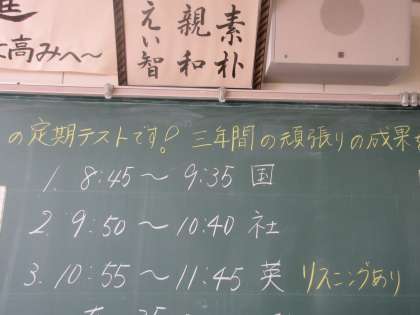 高みへ〜
素朴
親和
えい智
の定期テストです! 三年間の頑張りの成果を
1. 8:45 〜 9:35 国
2. 9:50 〜 10:40 社
3. 10:55 〜 11:45 英 リスニングあり